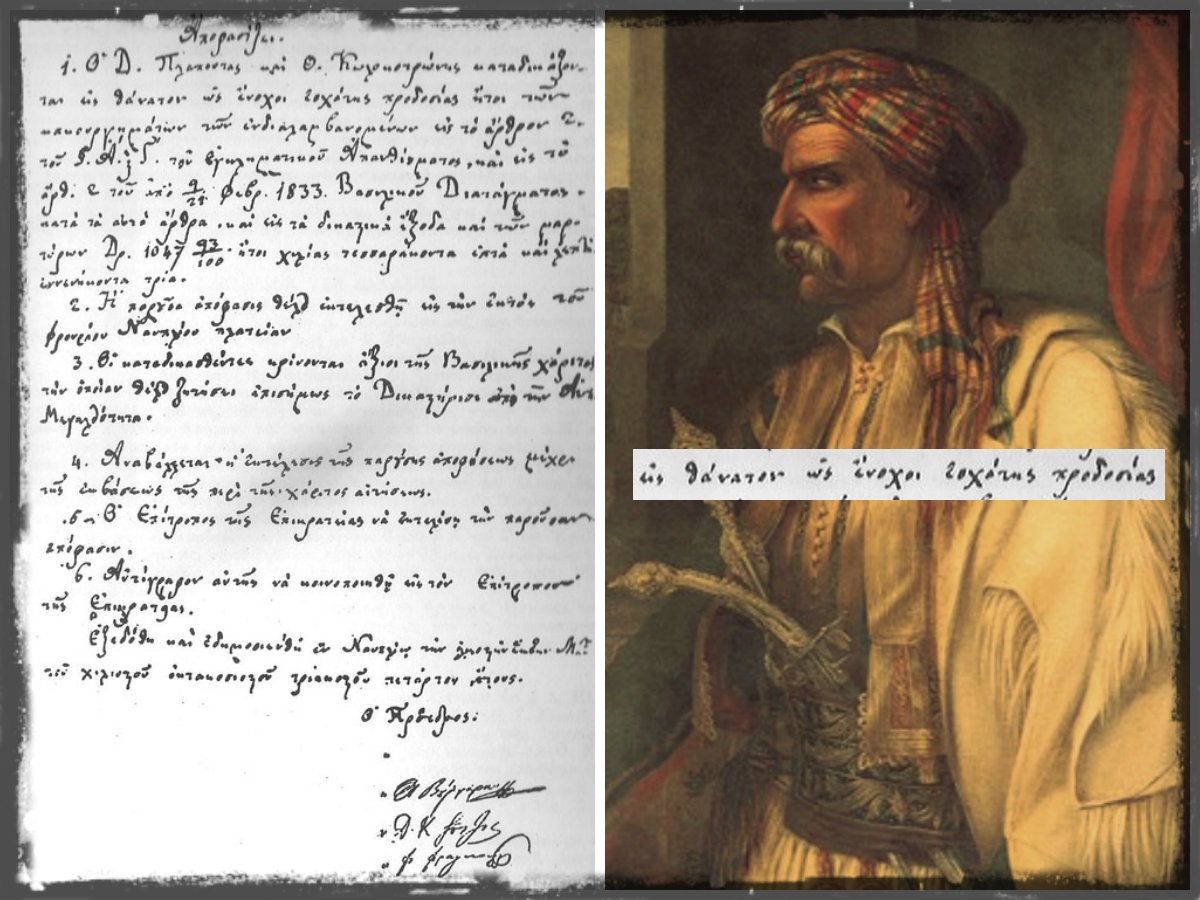 Ἀποφασίζει.
1. Ὁ Δ. Πλαπούτας καὶ Θ. Κωλοκοτρώνης καταδικάζον-
ται εἰς θάνατον ὡς ἔνοχοι ἐσχάτης προδοσίας ἤτοι τῶν
κακουργημάτων τῶν ἐνδιαλαμβανομένων εἰς τὸ ἄρθρον 2.
τοῦ Ἐγκληματικοῦ Ἀπανθίσματος, καὶ εἰς τὸ
ἄρθ. 2 τοῦ ἀπὸ 9/21 Φεβρ. 1833. Βασιλικοῦ Διατάγματος.
κατὰ τὰ αὐτὰ ἄρθρα, καὶ εἰς τὰ δικαστικὰ ἔξοδα καὶ τῶν μαρ-
τύρων Δρ. 1047 93/100 ἤτοι χιλίας τεσσαράκοντα ἑπτὰ καὶ λεπτὰ
ἐννενήκοντα τρία.
2. Ἡ παροῦσα ἀπόφασις θέλει ἐκτελεσθῇ εἰς τὴν ἐκτὸς τοῦ
φρουρίου Ναυπλίου πλατεῖαν
3. Οἱ καταδικασθέντες κρίνονται ἄξιοι τῆς Βασιλικῆς χάριτος
τὴν ὁποίαν θέλει ζητήσει ἐπισήμως τὸ Δικαστήριον ἀπὸ τὴν
Μεγαλειότητα.
4. Ἀναβάλλεται ἡ ἐκτέλεσις τῆς παρούσης ἀποφάσεως μέχρι
τῆς ἐκβάσεως τῆς περὶ τῆς χάριτος αἰτήσεως.
5. Ὁ Ἐπίτροπος τῆς Ἐπικρατείας νὰ ἐκτελέσῃ τὴν παροῦσαν
ἀπόφασιν.
6. Ἀντίγραφον αὐτῆς νὰ κοινοποιηθῇ εἰς τὸν Ἐπίτροπον
τῆς Ἐπικρατείας.
Ἐξεδόθη καὶ ἐδημοσιεύθη ἐν Ναυπλίῳ τὴν
τοῦ χιλιοστοῦ ὀκτακοσιοστοῦ τριακοστοῦ τετάρτου ἔτους.
Ὁ Πρόεδρος:
εἰς θάνατον ὡς ἔνοχοι ἐσχάτης προδοσίας